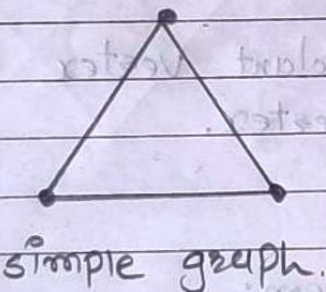 simple graph.